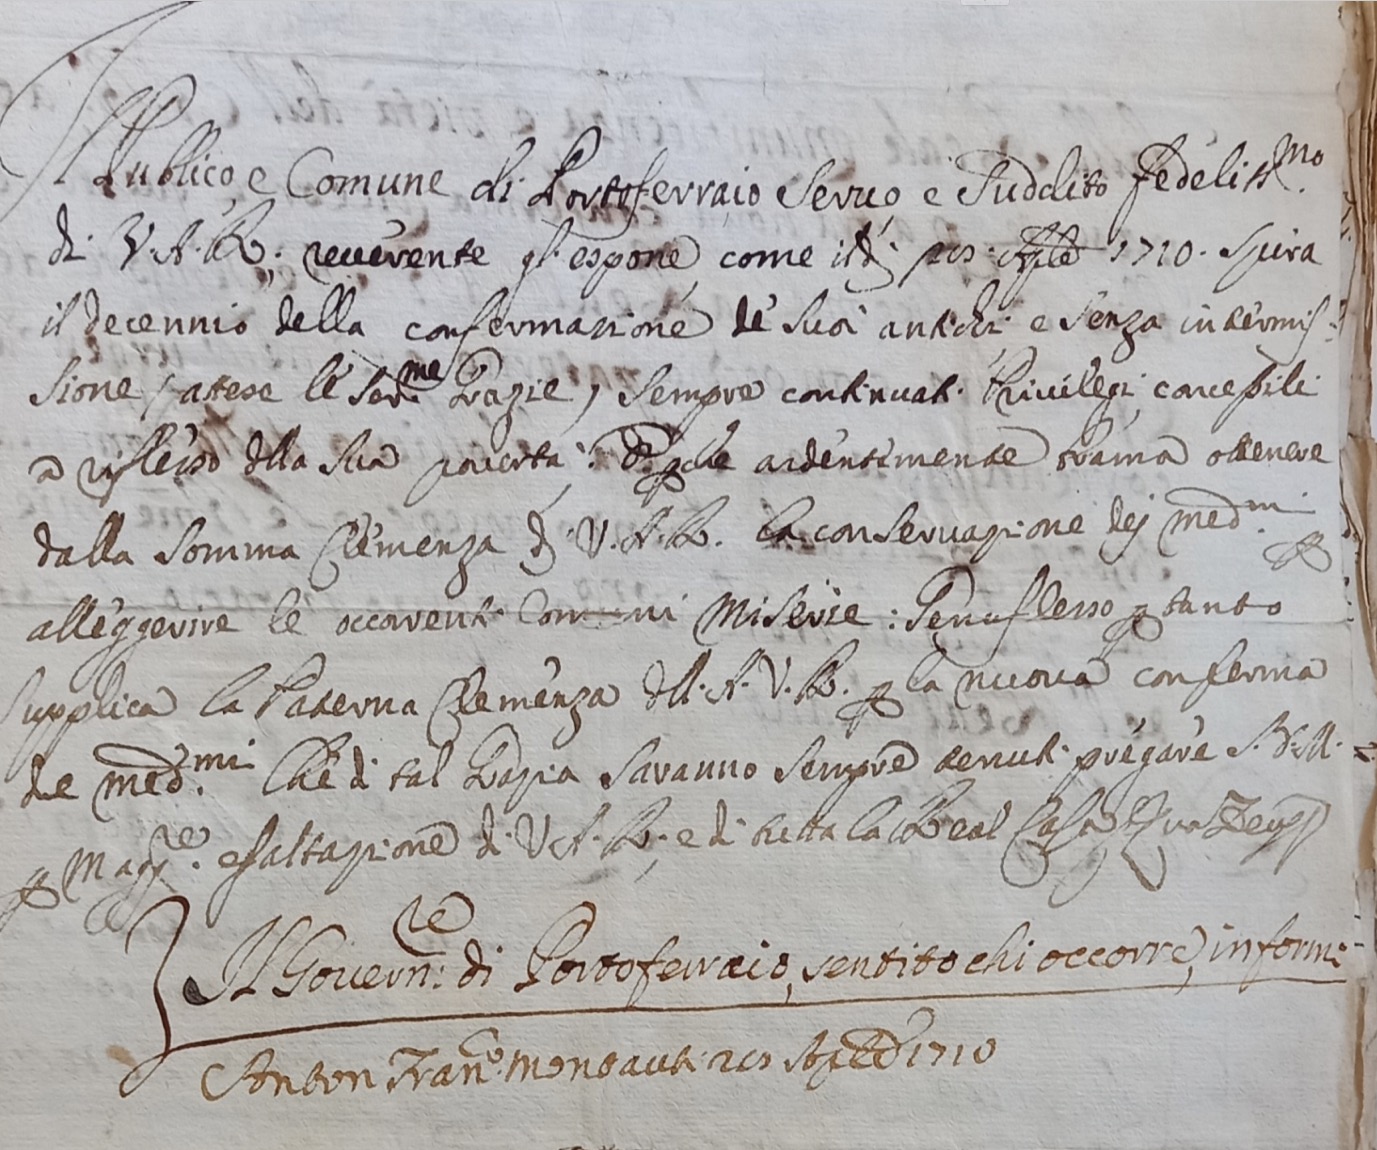 Il Publico, e Comune di Portoferraio Servo, e Suddito fedeliss.mo
di V. A. R. reverente gl'espone come il dì p.o 1710. spira
il decennio della confermazione de suoi antichi e senza intermis-
sione (attese le Ser.me Grazie) sempre continuati Privilegi concessili
a riflesso dlla sua povertà: E p che ardentemente brama ottenere
dalla somma Clemenza di V. A. R. la conservazione dej med.mi p
alleggerire le occorrenti Comuni Miserie: Genuflesso p tanto
supplica la Paterna Clemenza dll. A. V. R. p la nuova conferma
de med.mi Che di tal Grazia saranno sempre tenuti pregare S. D. M.
p Magg.re esaltazione di V. A. R., e di tutta la Real Casa
Il Govern.re di Portoferraio, sentito chi occorre, informi
Anton Fran.o Montauti 1710